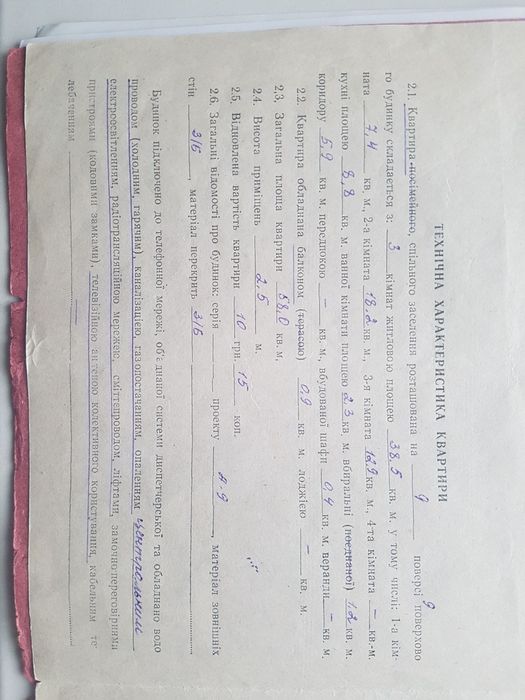 ТЕХНІЧНА ХАРАКТЕРИСТИКА КВАРТИРИ
2.1. Квартира посімейного, спільного заселення розташована на 9 поверсі 9 поверхово
го будинку складається з: 3 кімнат житловою площею 38,5 кв. м. у тому числі: 1-а кім-
ната 7,4 кв м., 2-а кімната 18.2 кв. м., 3-я кімната 12,9 кв. м., 4-та кімната — кв.-м.
кухні площею 8,8 кв. м. ванної кімнати площею 2,3 кв. м. вбиральні (поєднаної) 1.2 кв. м.
коридору 5,9 кв. м. передпокою — кв. м., вбудованої шафи 0,4 кв. м. веранди — кв. м.
2.2. Квартира обладнана балконом (терасою) 0,9 кв. м. лоджією — кв. м.
2.3. Загальна площа квартири 58,0 кв. м,
2.4. Висота приміщень 2,5 м.
2.5. Відновлена вартість квартири 10 грн. 15 коп.
2.6. Загальні відомості про будинок: серія проекту п.д , матеріал зовнішніх
стін з/б , матеріал перекрить з/б
Будинок підключено до телефонної мережі, об'єднаної системи диспетчерської та обладнано водо
проводом (холодним, гарячим), каналізацією, газопостачанням, опаленням центральним
електроосвітленням, радіотрансляційною мережею, сміттєпроводом, ліфтами, замочнопереговірними
пристроями (кодовими замками), телевізійною антеною колективного користування, кабельним те
лебаченням